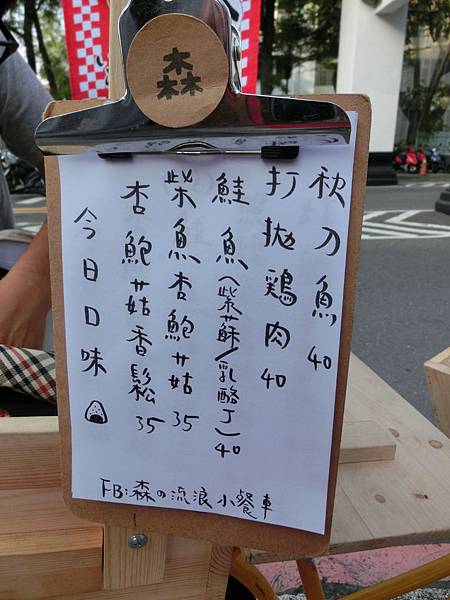 森
秋刀魚 40
打拋鷄肉 40
鮭魚(紫蘇/乳酪丁) 40
柴魚杏鮑菇 35
杏鮑菇香鬆 35
今日口味
FB:森の流浪小餐車